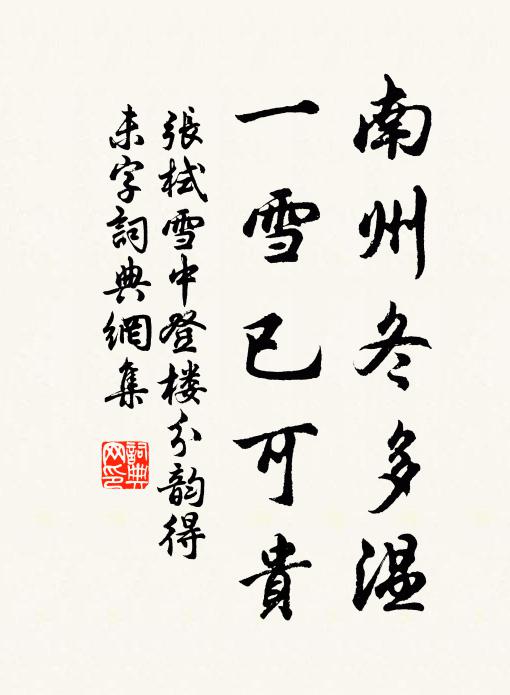 南州冬多温
一雪已可貴
張栻雪中登楼分韵得
未字詞典網集
詞典网印